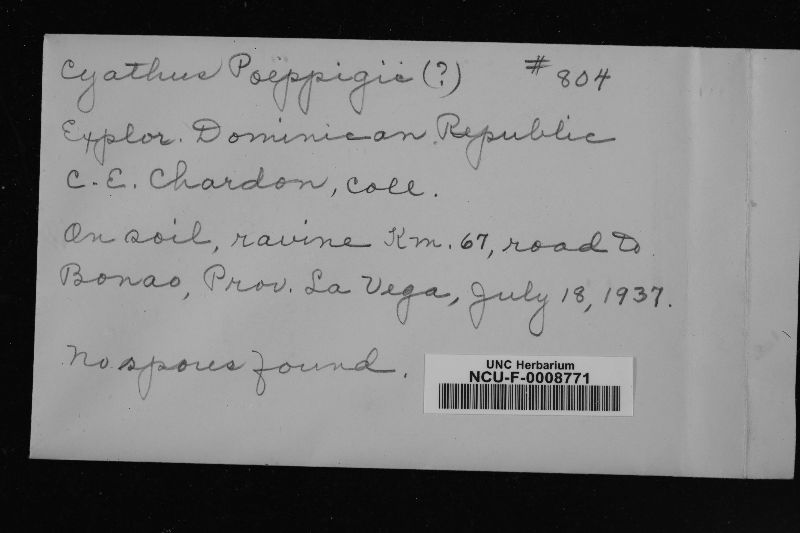 Cyathus Poëppigii (?) # 804
Explor. Dominican Republic
C. E. Chardon, coll.
On soil, ravine Km. 67, road to
Bonao, Prov. La Vega, July 18, 1937.
No spores found.
UNC Herbarium
NCU-F-0008771